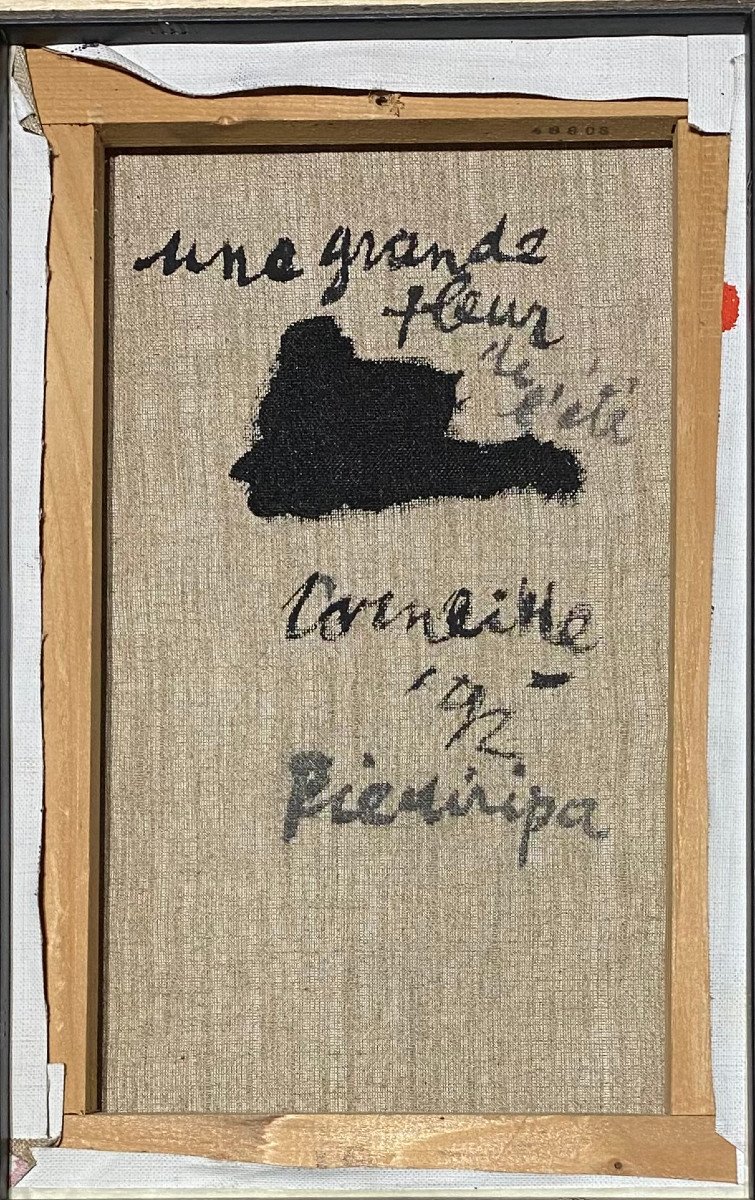 48808
une grande
fleur
de
l'été
Corneille
'92
Piediripa